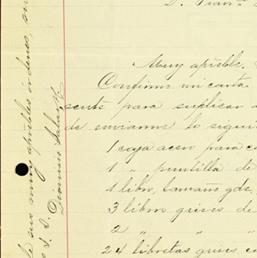 D. Fran
Muy apreble.
Confirmo mi carta
sente para suplicar
de enviarme lo sigui
1 caja acero para
1 " puntilla de
1 libro, tamaño gde,
3 libro grises de
2 " "
24 libretas grises
de sus muy aprebles ordenes, su
S. S. Dionisio